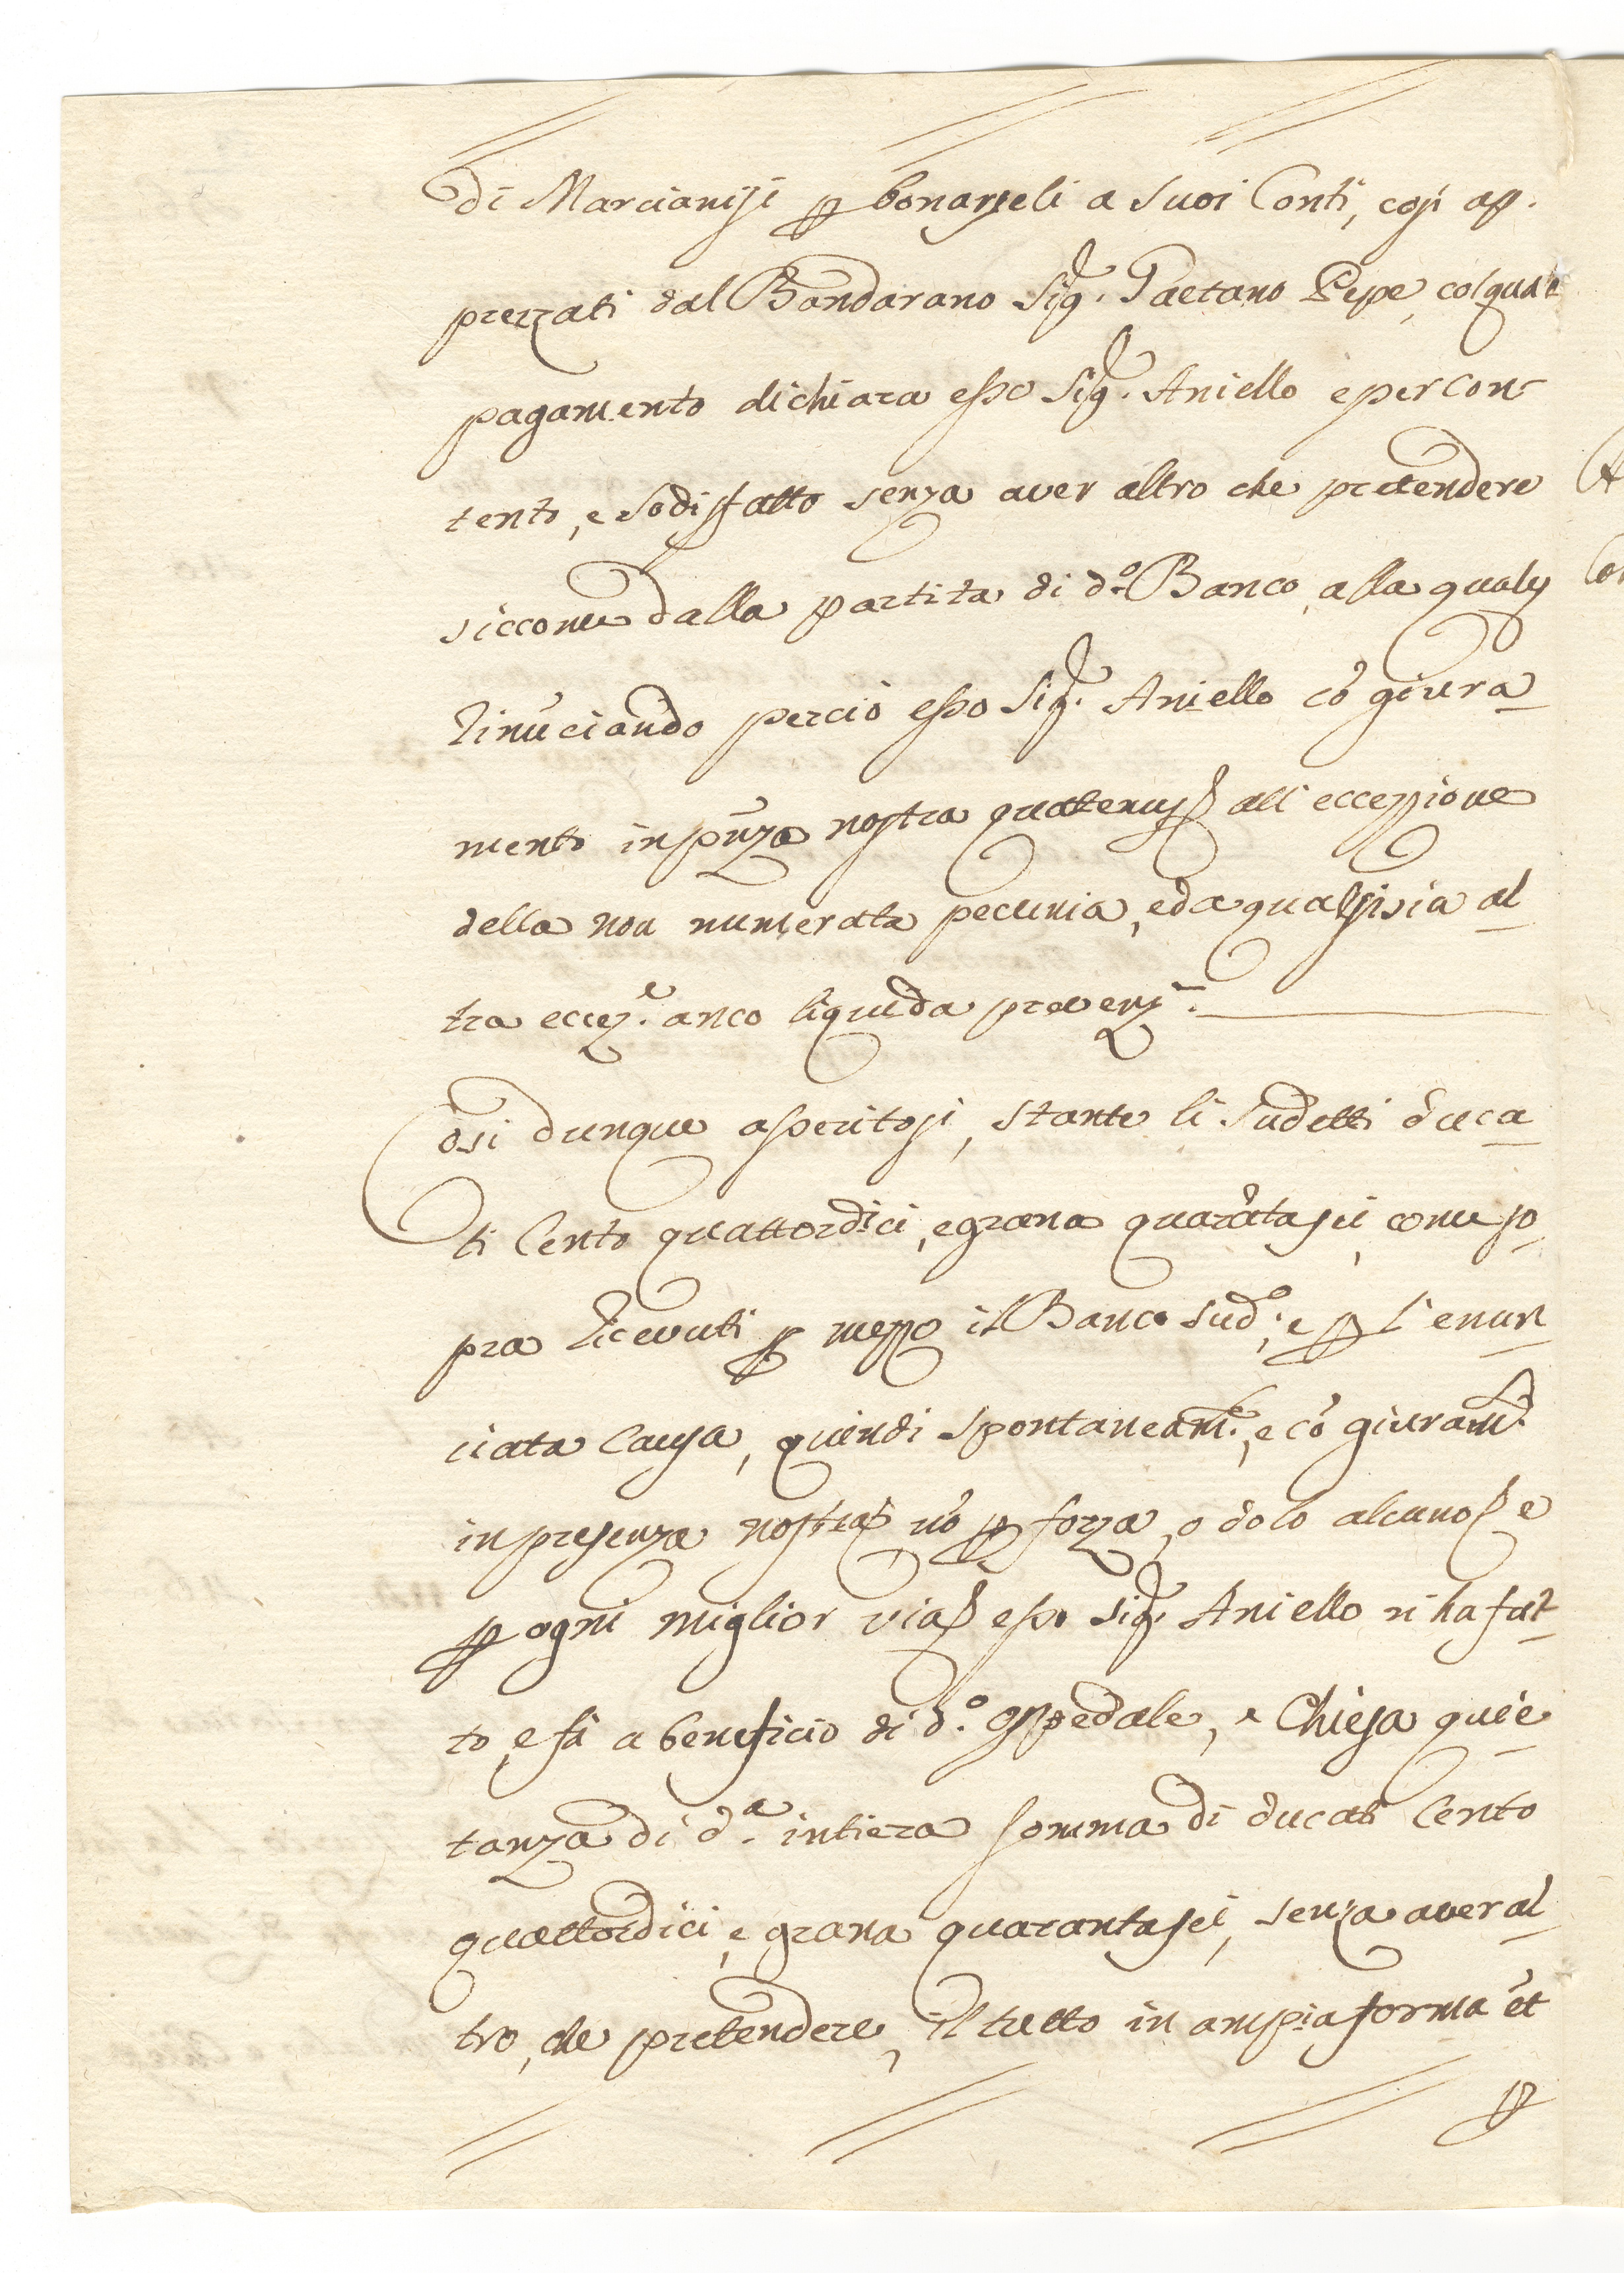 di Marcianisi p bonarseli a suoi Conti, così ap.
prezzati dal Bandararo Sig.r Gaetano Pepe, col qual
pagamento dichiara esso Sig.r Aniello esser con
tento, e sodisfatto senza aver altro che pretendere
siccome dalla partita di d.o Banco, alla quale
Rinūciando perciò esso Sig.r Aniello cō giura
mento in pñza nostra quatenus all'eccessione
della non numerata pecunia, ed a qualsisia al
tra eccez.e anco liquida preven.
Così dunque asseritosi, stante li sudetti duca
ti Cento quattordici, e grana quarātasei, come so
pra ricevuti p mezzo il Banco sud.o, e p l'enun
ciata causa, quindi spontaneam.e, e cō giuram.to
in presenza nostra nō p forza, o dolo alcuno e
p ogni miglior via esso Sig.r Aniello ni ha fat
to, e fà a beneficio di d.o Ospedale, e Chiesa quie
tanza di d.a intiera somma di ducati Cento
quattordici, e grana quarantasei, senza aver al
tro, che pretendere, il tutto in ampia forma et
p